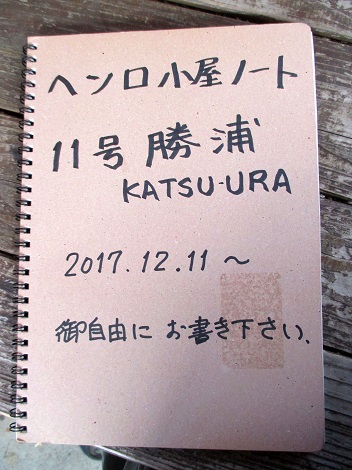 ヘンロ小屋ノート
11号 勝浦
KATSU-URA
2017.12.11～
御自由に お書き下さい、